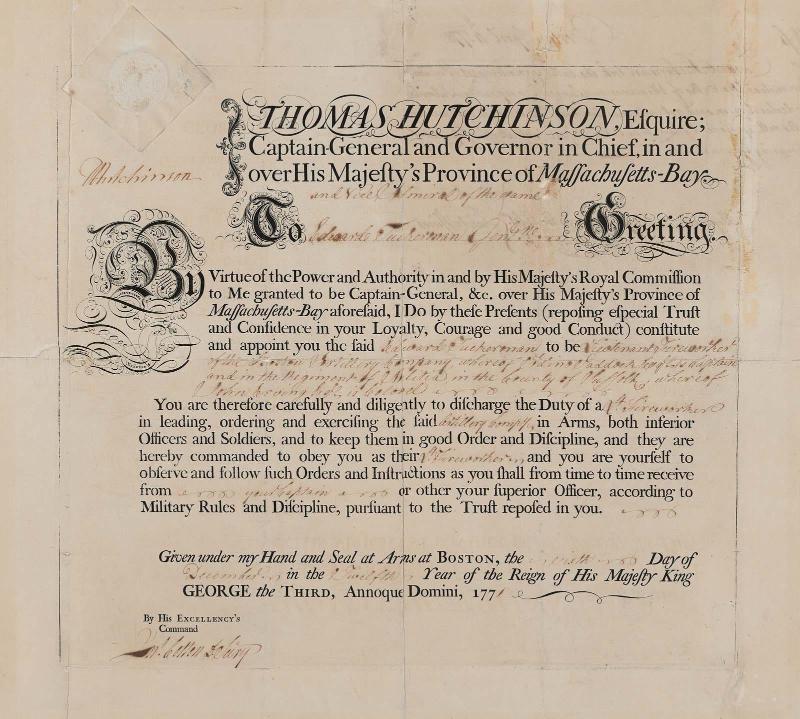 THOMAS HUTCHINSON, Eſquire;
Captain-General and Governor in Chief, in and
over His Majeſty's Province of Maſſachuſetts-Bay
THutchinson
and Vice Admiral of the same
To Edward Tuckerman Gent. Greeting.
By Virtue of the Power and Authority in and by His Majeſty's Royal Commiſſion
to Me granted to be Captain-General, &c. over His Majeſty's Province of
Maſſachuſetts-Bay aforeſaid, I Do by theſe Preſents (repoſing eſpecial Truſt
and Confidence in your Loyalty, Courage and good Conduct) conſtitute
and appoint you the ſaid Edward Tuckerman to be Lieutenant Fireworker
of the Boston Artillery Company whereof Adino Paddock Esqr is Captain
and in the Regiment of Militia in the County of Suffolk, whereof
John Erving Esq. is Colonel
You are therefore carefully and diligently to diſcharge the Duty of a Lt. Fireworker
in leading, ordering and exerciſing the ſaid Artillery Compy. in Arms, both inferior
Officers and Soldiers, and to keep them in good Order and Diſcipline, and they are
hereby commanded to obey you as their Lt. Fireworker, and you are yourſelf to
obſerve and follow ſuch Orders and Inſtructions as you ſhall from time to time receive
from your Captain or other your ſuperior Officer, according to
Military Rules and Diſcipline, purſuant to the Truſt repoſed in you.
Given under my Hand and Seal at Arms at BOSTON, the Day of
December in the Twelfth Year of the Reign of His Majeſty King
GEORGE the THIRD, Annoque Domini, 1771
By His EXCELLENCY'S
Command